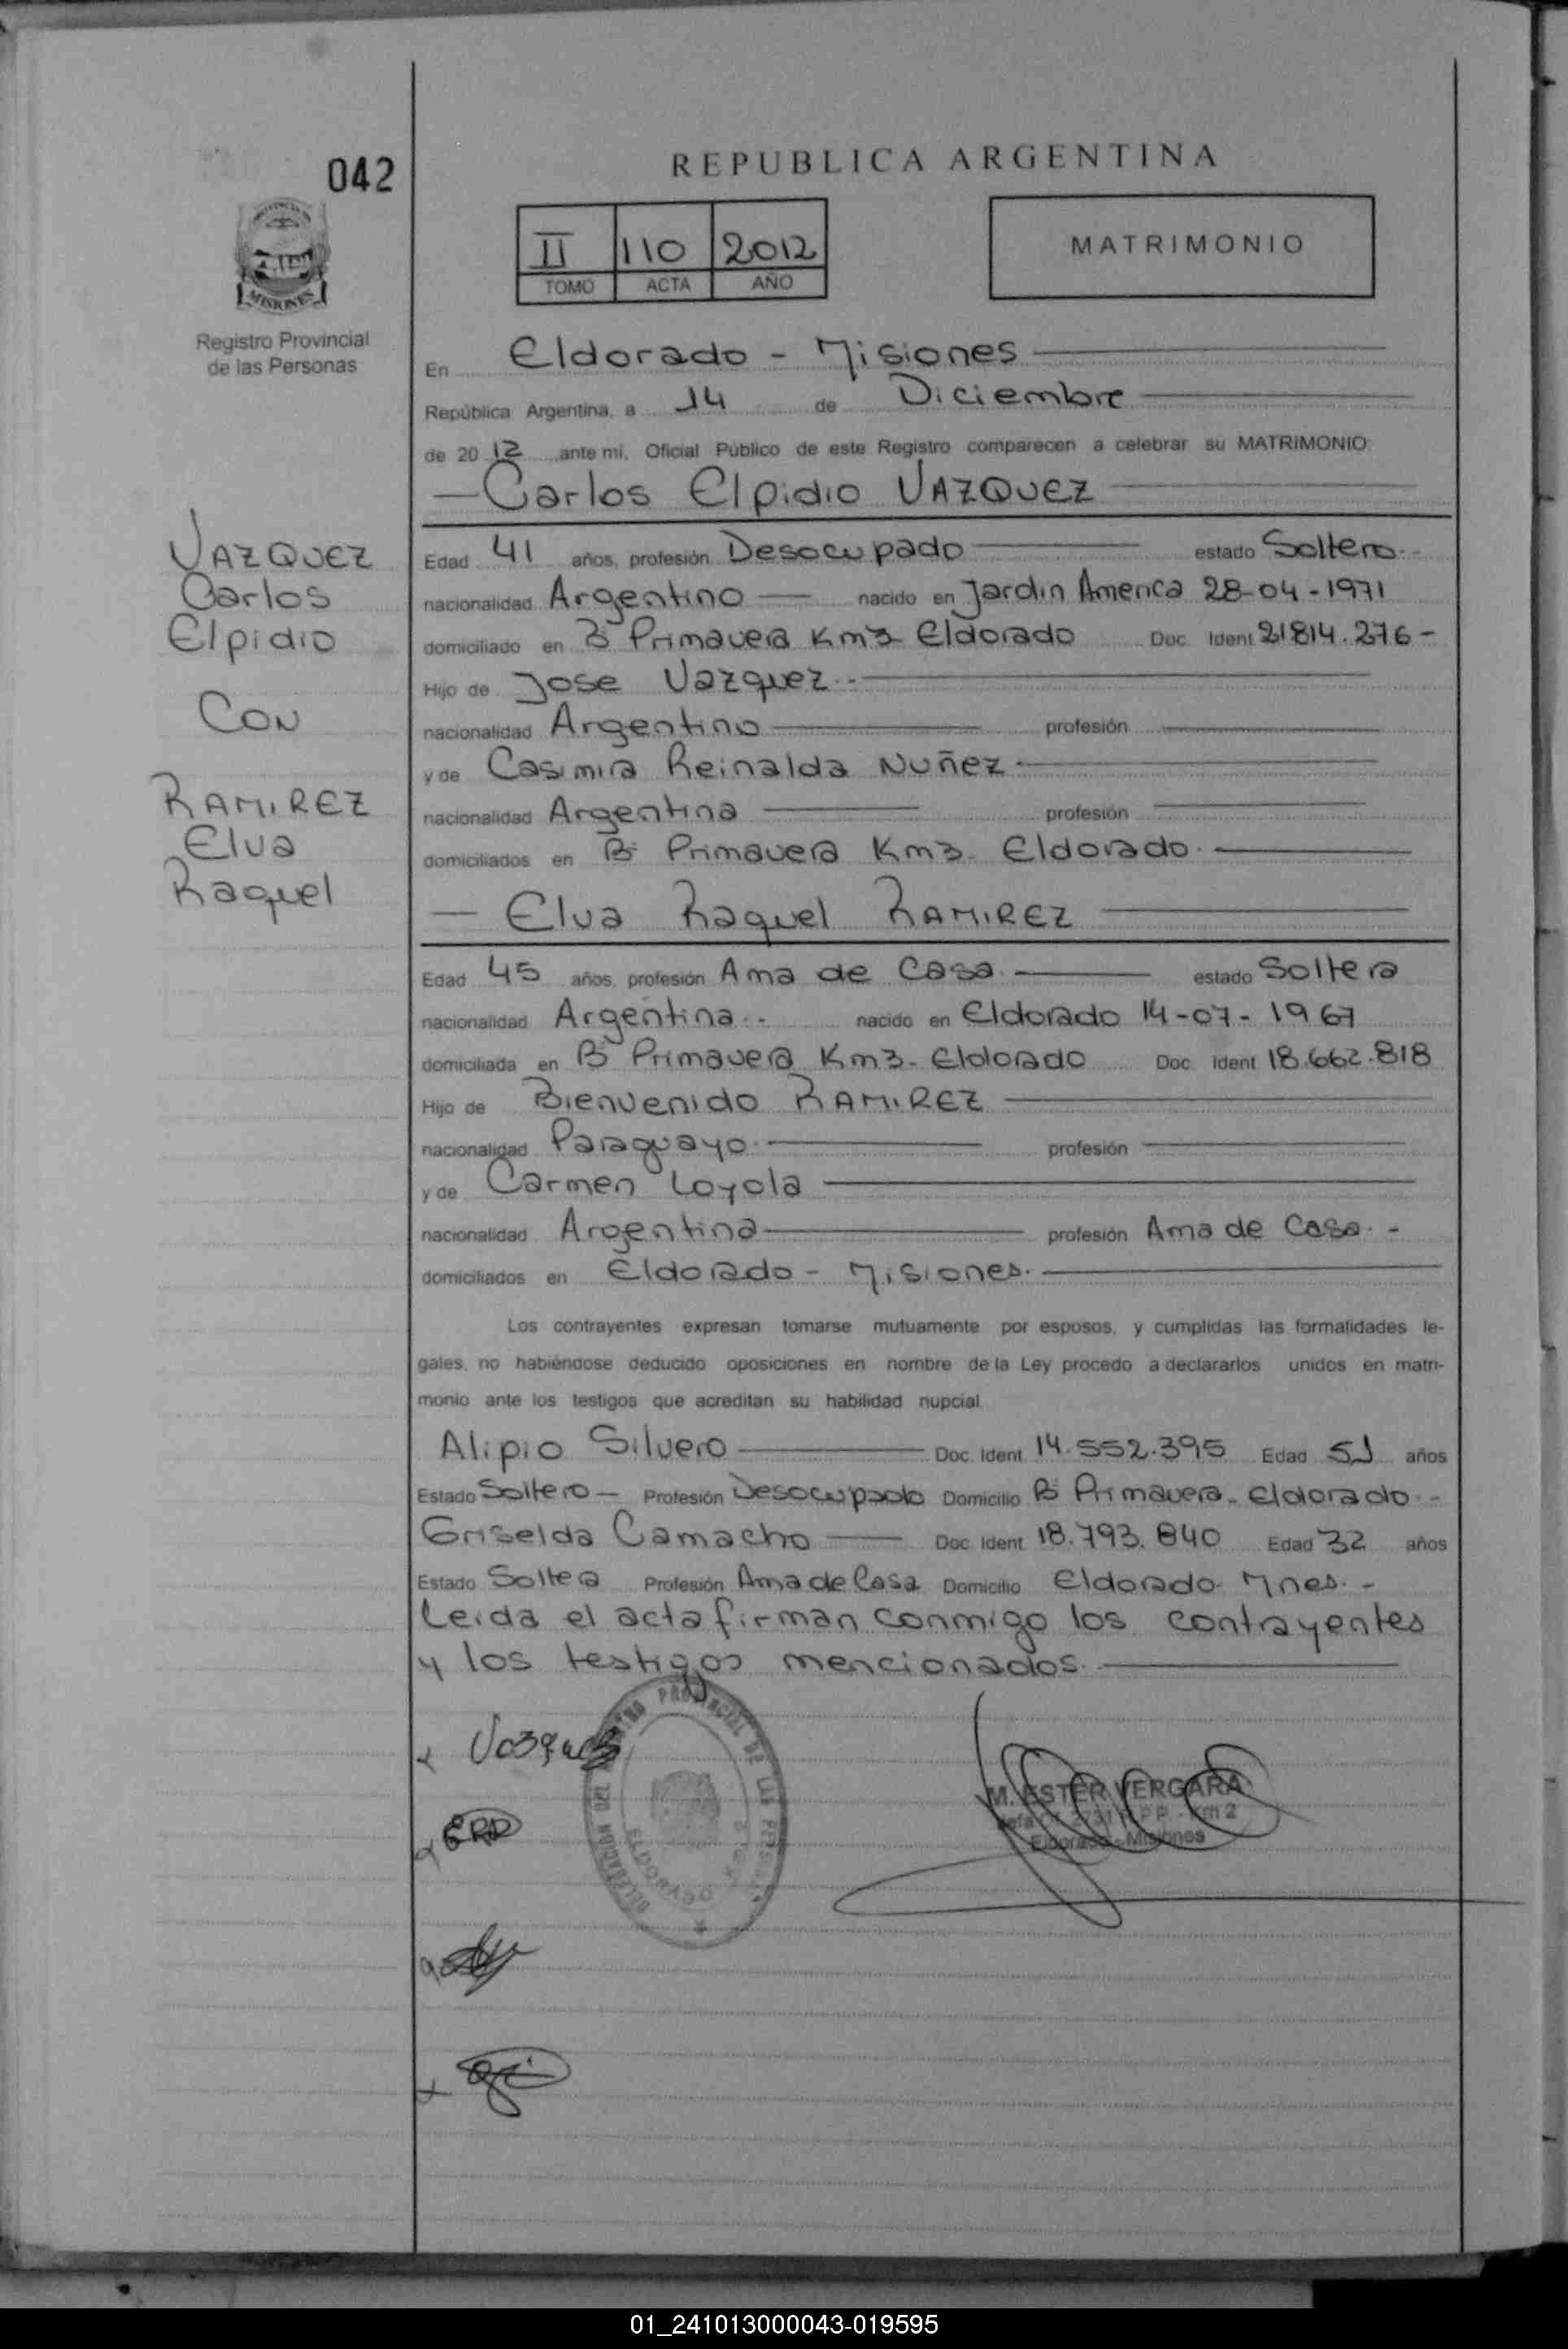 042
REPUBLICA ARGENTINA
II 110 2012
TOMO ACTA AÑO
MATRIMONIO
MISIONES
Registro Provincial
de las Personas
En Eldorado - Misiones
República Argentina, a 14 de Diciembre
de 2012 ante mi, Oficial Público de este Registro comparecen a celebrar su MATRIMONIO:
Carlos Elpidio VAZQUEZ
VAZQUEZ
Carlos
Elpidio
CON
RAMIREZ
Elva
Raquel
Edad 41 años, profesión Desocupado estado Soltero.-
nacionalidad Argentino nacido en Jardin America 28-04-1971
domiciliado en Bº Primavera Km3- Eldorado Doc. Ident 21814.276-
Hijo de Jose Vazquez.-
nacionalidad Argentino profesión
y de Casimira Reinalda Nuñez
nacionalidad Argentina profesión
domiciliados en Bº Primavera Km3- Eldorado.
Elva Raquel RAMIREZ
Edad 45 años, profesión Ama de Casa. estado Soltera
nacionalidad Argentina.- nacido en Eldorado 14-07-1967
domiciliada en Bº Primavera Km3- Eldorado Doc. Ident 18.662.818
Hijo de Bienvenido RAMIREZ
nacionalidad Paraguayo. profesión
y de Carmen Loyola
nacionalidad Argentina profesión Ama de Casa.-
domiciliados en Eldorado - Misiones.
Los contrayentes expresan tomarse mutuamente por esposos, y cumplidas las formalidades le-
gales, no habiéndose deducido oposiciones en nombre de la Ley procedo a declararlos unidos en matri-
monio ante los testigos que acreditan su habilidad nupcial
Alipio Silvero Doc. Ident 14.552.395 Edad 51 años
Estado Soltero- Profesión Desocupado Domicilio Bº Primavera- Eldorado.-
Griselda Camacho Doc. Ident 18.793.840 Edad 32 años
Estado Soltera Profesión Ama de Casa Domicilio Eldorado- Mnes.-
Leida el acta firman conmigo los contrayentes
y los testigos mencionados.
DELEGACION DEL REGISTRO PROVINCIAL DE LAS PERSONAS
ELDORADO
M. ESTER VERGARA
Km 2
Eldorado - Misiones
ERR
01_241013000043-019595